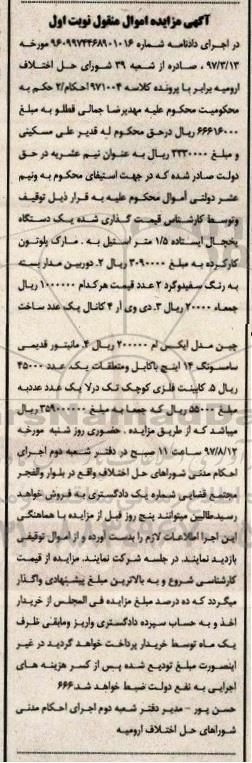 آگهی مزایده اموال منقول نوبت اول
در اجرای دادنامه شماره ۹۶۰۹۹۷۴۴۶۸۹۰۱۰۱۶ مورخه
۹۷/۳/۱۳ ، صادره از شعبه ۳۹ شورای حل اختلاف
ارومیه برابر با پرونده کلاسه ۹۷۱۰۰۴/احکام/۲ حکم به
محکومیت محکوم علیه مهدیرضا جمالی قطلو به مبلغ
۶۶۶۱۶۰۰۰ ریال درحق محکوم له قدیر علی مسکینی
و مبلغ ۳۳۳۰۰۰۰ ریال به عنوان نیم عشریه در حق
دولت صادر شده که در جهت استیفای محکوم به ونیم
عشر دولتی اموال محکوم علیه به قرار ذیل توقیف
وتوسط کارشناس قیمت گذاری شده یک دستگاه
یخچال ایستاده ۱/۵ متر استیل به . مارک پلوتون
کارکرده به مبلغ ۳۰۹۰۰۰۰ ریال ۲. دوربین مدار بسته
به رنگ سفیدوگرد ۲ عدد قیمت هرکدام ۱۰۰۰۰۰۰ ریال
جمعاء ۲۰۰۰۰ ریال ۳. دی وی آر ۴ کانال یک عدد ساخت
چین مدل ایکس ام ۲۰۰۰۰۰ ریال ۴. مانیتور قدیمی
سامسونگ ۱۴ اینچ باکابل ومتعلقات یک عدد ۴۵۰۰۰
ریال ۵. کابینت فلزی کوچک تک درلا یک عدد عدبه
مبلغ ۵۵۰۰۰ ریال که جمعا به مبلغ ۳۵۹۰۰۰۰۰ ریال
میباشد که از طریق مزایده . حضوری روز شنبه مورخه
۹۷/۸/۱۲ ساعت ۱۱ صبح در دفتر شعبه دوم اجرای
احکام مدنی شوراهای حل اختلاف واقع در بلوار والفجر
مجتمع قضایی شماره یک دادگستری به فروش خواهد
رسیدطالبین میتوانند پنج روز قبل از مزایده با هماهنگی
این اجرا اطلاعات لازم را بدست آورده و از اموال توقیفی
بازدید نمایند. در جلسه شرکت نمایند. مزایده از قیمت
کارشناسی شروع و به بالاترین مبلغ پیشنهادی واگذار
میگردد که ده درصد مبلغ مزایده فی المجلس از خریدار
اخذ و به حساب سپرده دادگستری واریز ومابقی ظرف
یک ماه توسط خریدار پرداخت خواهد گردید در غیر
اینصورت مبلغ تودیع شده پس از کسر هزینه های
اجرایی به نفع دولت ضبط خواهد شد.۶۶۶
حسن پور - مدیر دفتر شعبه دوم اجرای احکام مدنی
شوراهای حل اختلاف ارومیه